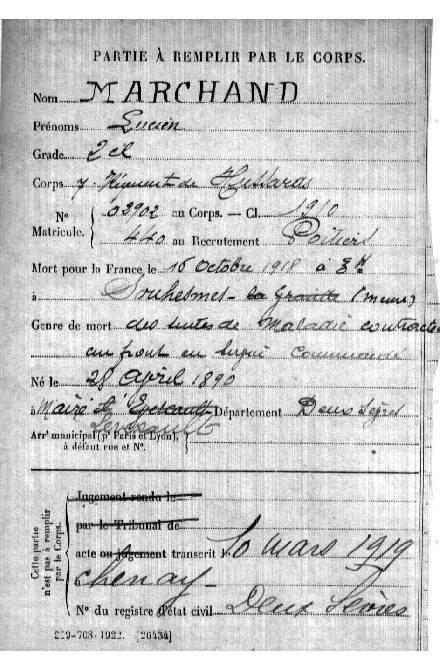 PARTIE À REMPLIR PAR LE CORPS.
Nom MARCHAND
Prénoms Lucien
Grade 2 cl
Corps 7. Régiment de Hussards
N° Matricule. 03902 au Corps. — Cl. 1910
440 au Recrutement Poitiers
Mort pour la France le 16 Octobre 1918 à 3 H
à Souhesmes - la Grande (Meuse)
Genre de mort des suites de Maladie contractée
au front en Commandé
Né le 28 April 1890
à Mairé Département Deux Sèvres
Levescault
Arr<sup>t</sup> municipal (p<sup>r</sup> Paris et Lyon),
à défaut rue et N°.
Cette partie n'est pas à remplir par le Corps.
Jugement rendu le
par le Tribunal de
acte ou jugement transcrit le 10 mars 1919
Chenay
N° du registre d'état civil Deux Sèvres
229-708-1922. [26434]